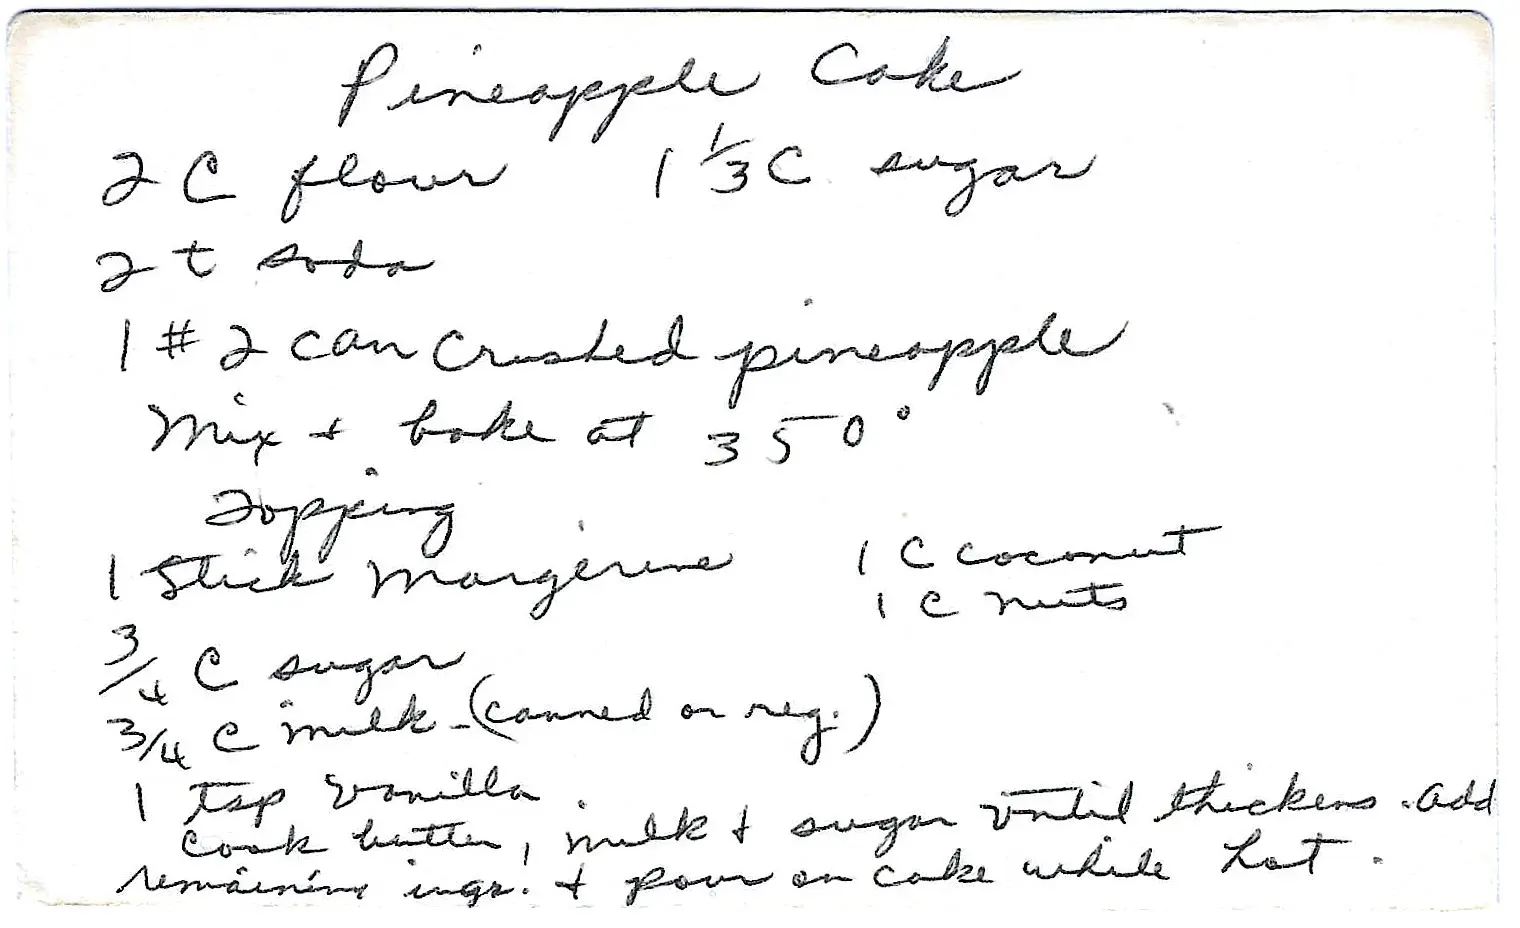 Pineapple Cake
2 C flour 1 1/3 C sugar
2 t soda
1 # 2 can crushed pineapple
Mix + bake at 350°
Topping
1 Stick Margerine 1 C coconut
1 C nuts
3/4 C sugar
3/4 C milk - (canned or reg.)
1 tsp vanilla.
Cook butter, milk + sugar until thickens. Add
remaining ingr. + pour on cake while hot.